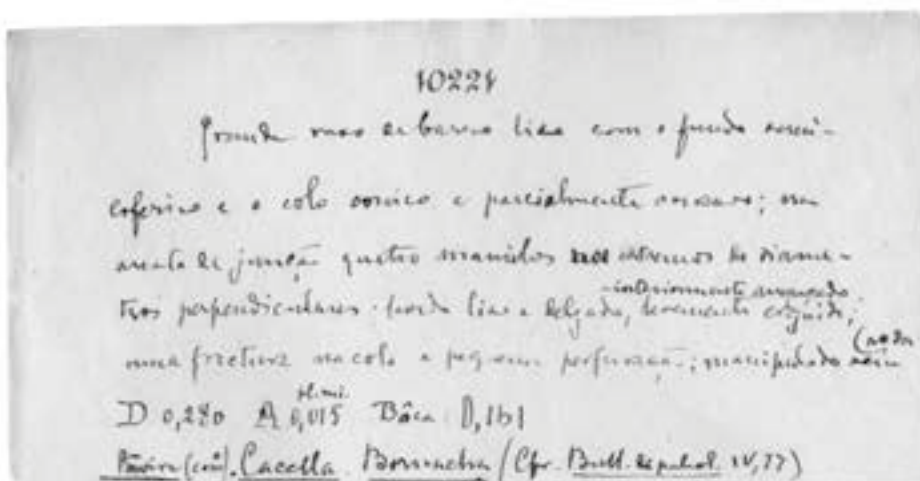 10221
Grande vaso de barro liso com o fundo semi-
esferico e o colo conico e parcialmente concavo; na
aresta de junção quatro mamilos nos extremos de diame-
tros perpendiculares. borda lisa e delgada, levemente
interiormente
uma fractura no colo e pequena perfuração; manipulado
D 0,280 A 0,015 Bôca 0,161
Cacella Bornacha (Cfr. Bull. IV, 77)